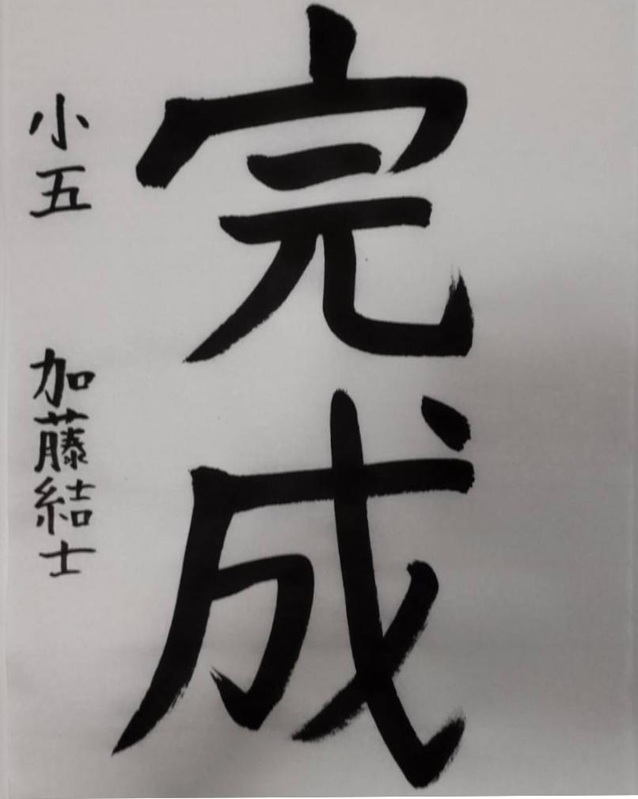 完成
小五 加藤結士